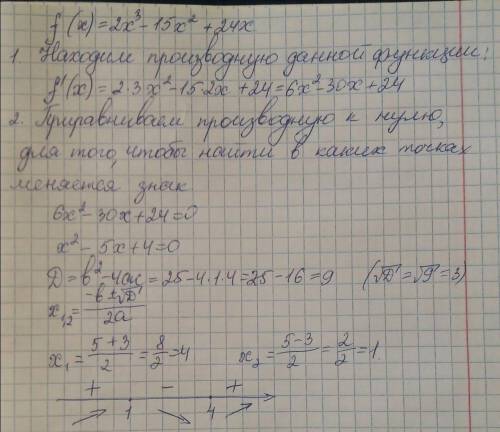 f(x)=2x³-15x²+24x
1. Находим производную данной функции:
f'(x)=2·3x²-15·2x+24=6x²-30x+24
2. Приравниваем производную к нулю,
для того, чтобы найти в каких точках
меняется знак
6x²-30x+24=0
x²-5x+4=0
D=b²-4ac=25-4·1·4=25-16=9 (√D=√9=3)
x₁,₂=(-b±√D)/2a
x₁=(5+3)/2=8/2=4 x₂=(5-3)/2=2/2=1
+ - +
1 4